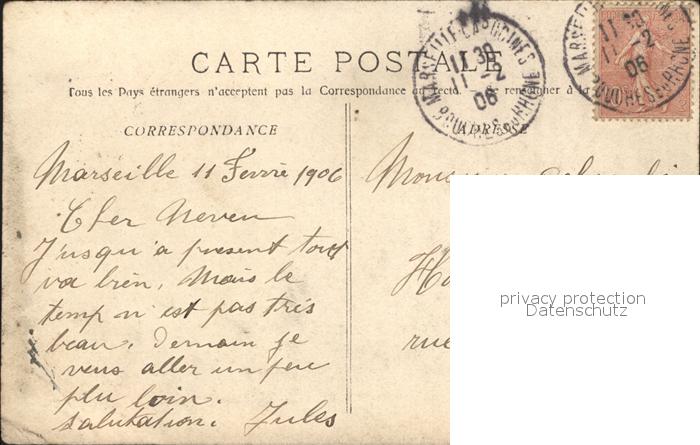 CARTE POSTALE
Tous les Pays étrangers n'acceptent pas la Correspondance au recto. Se renseigner à la
CORRESPONDANCE
ADRESSE
MARSEILLE
11 30
11 - 2
06
BOUCHES DU RHONE
11 30
11 - 2
06
BOUCHES DU RHONE
Marseille 11 Fevrie 1906
Cher Neveu
J'usqu'a present tout
va bien, Mais le
temp n'est pas tres
beau. Demain je
veus aller un peu
plu loin.
salutation. Jules
Monsieur
rue
privacy protection
Datenschutz